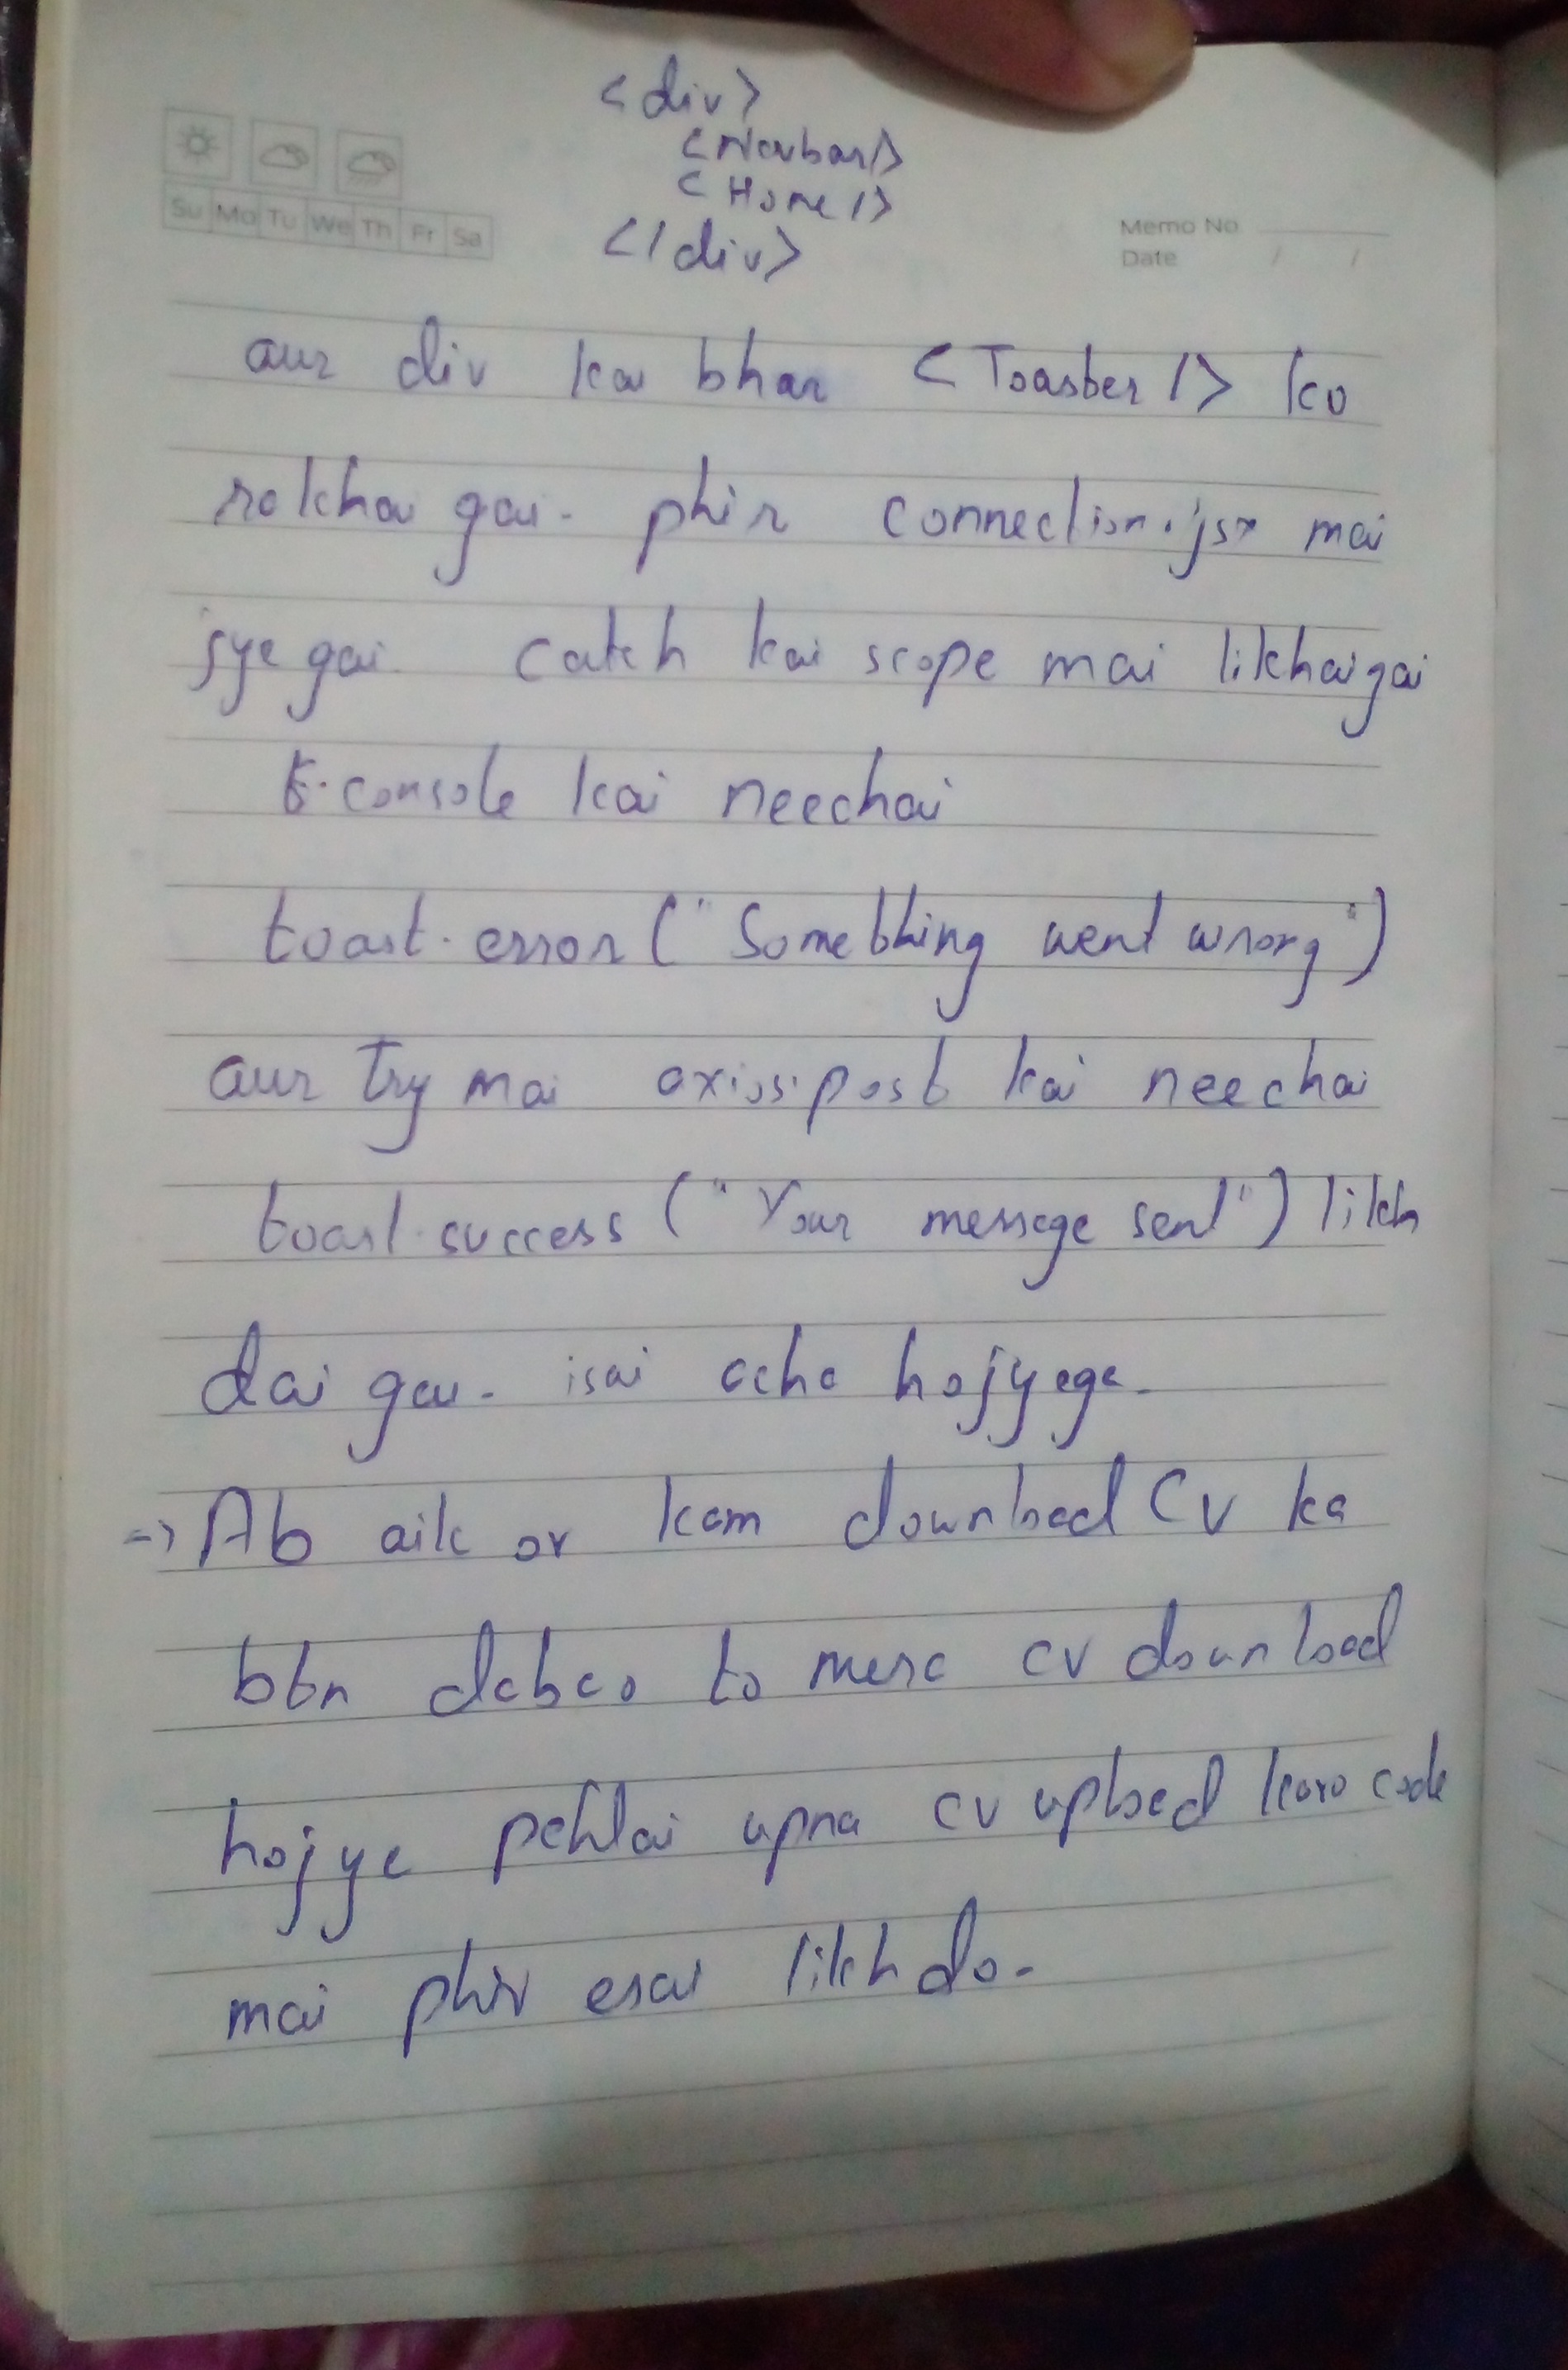 <div>
<Navbar/>
<Home/>
</div>
Su Mo Tu We Th Fr Sa
Memo No
Date / /
aur div kai bhar <Toaster/> ko
rakhai gai. phir connection.jsx mai
jye gai catch kai scope mai likhaigai
console kai neechai
toast.error("Something went wrong")
aur Try mai axios.post kai neechai
toast.success("Your message sent") likh
dai gai. isai acha hojyega.
=> Ab aik or kam download CV ka
btn dabao to mera cv download
hojye pehlai apna cv upload karo code
mai phir esai likh do.